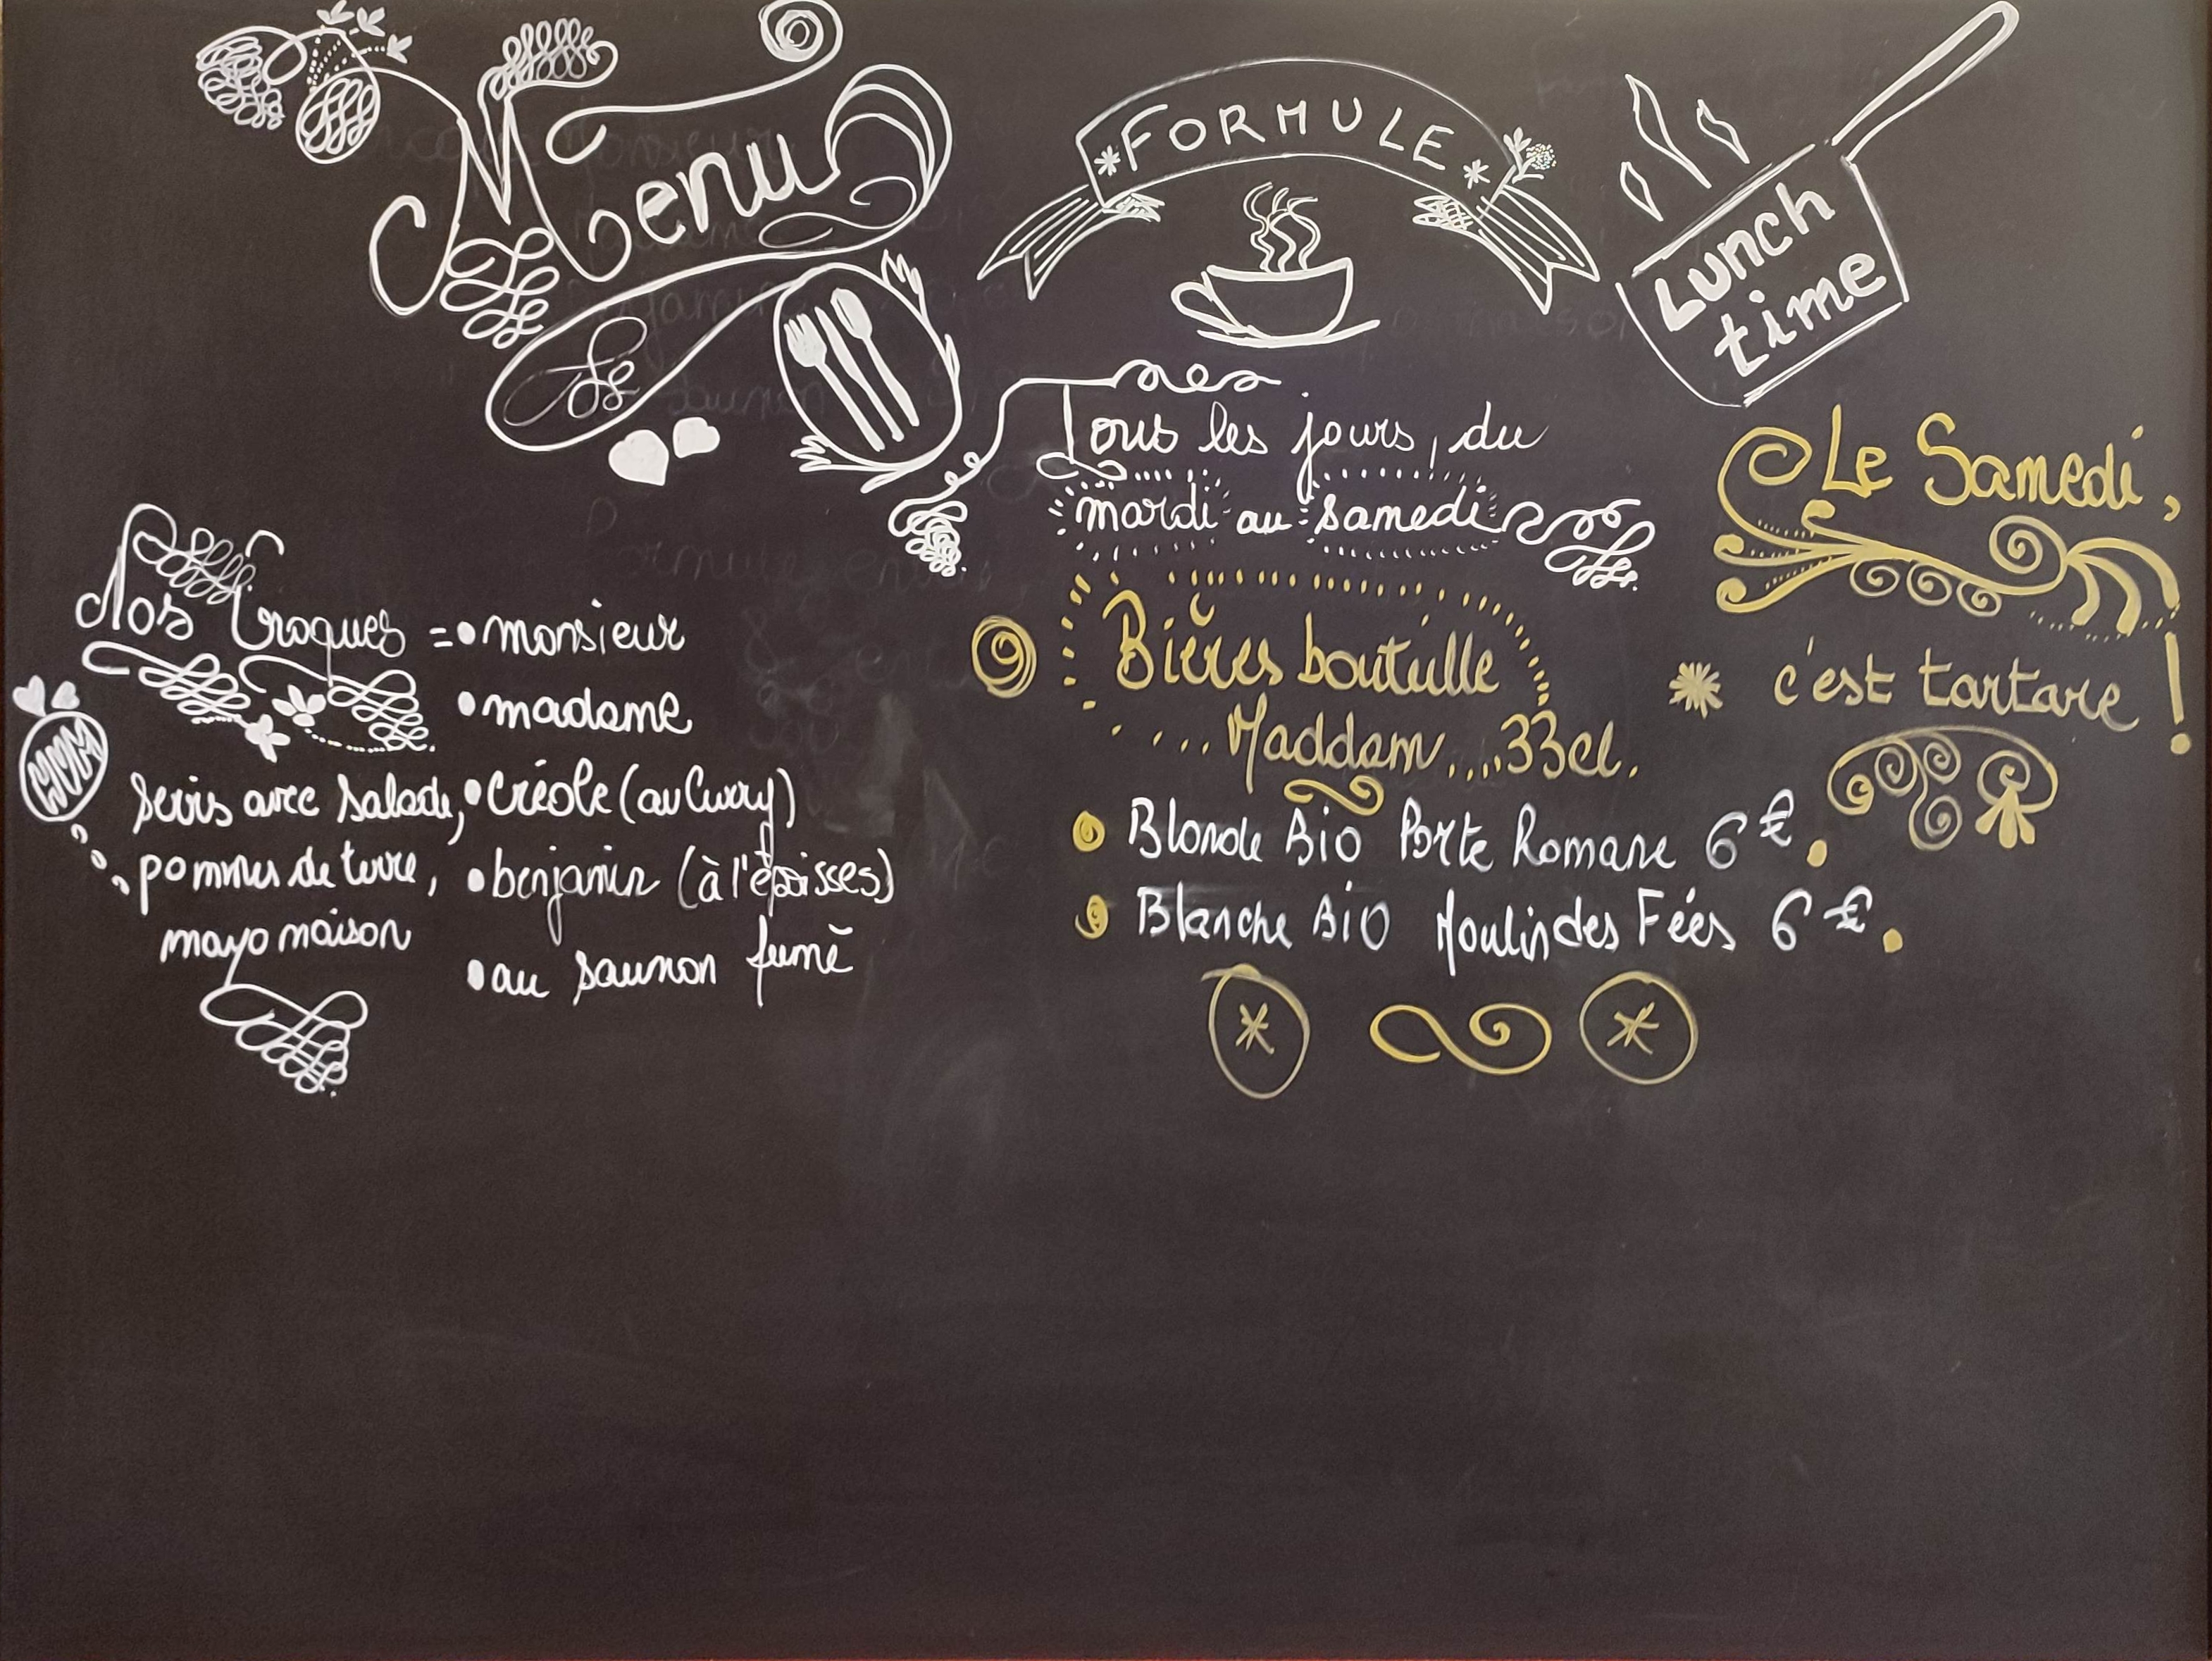 Menu
FORMULE
Lunch
time
Tous les jours, du
mardi au samedi
Le Samedi,
c'est tartare !
Nos Croques = • monsieur
• madame
• créole (au Curry)
• benjamin (à l'époisses)
• au saumon fumé
MMM
servis avec salade,
pommes de terre,
mayo maison
Bières bouteille
... Maddam....33cl.
Blonde Bio Porte Romane 6 €.
Blanche Bio Moulin des Fées 6 €.